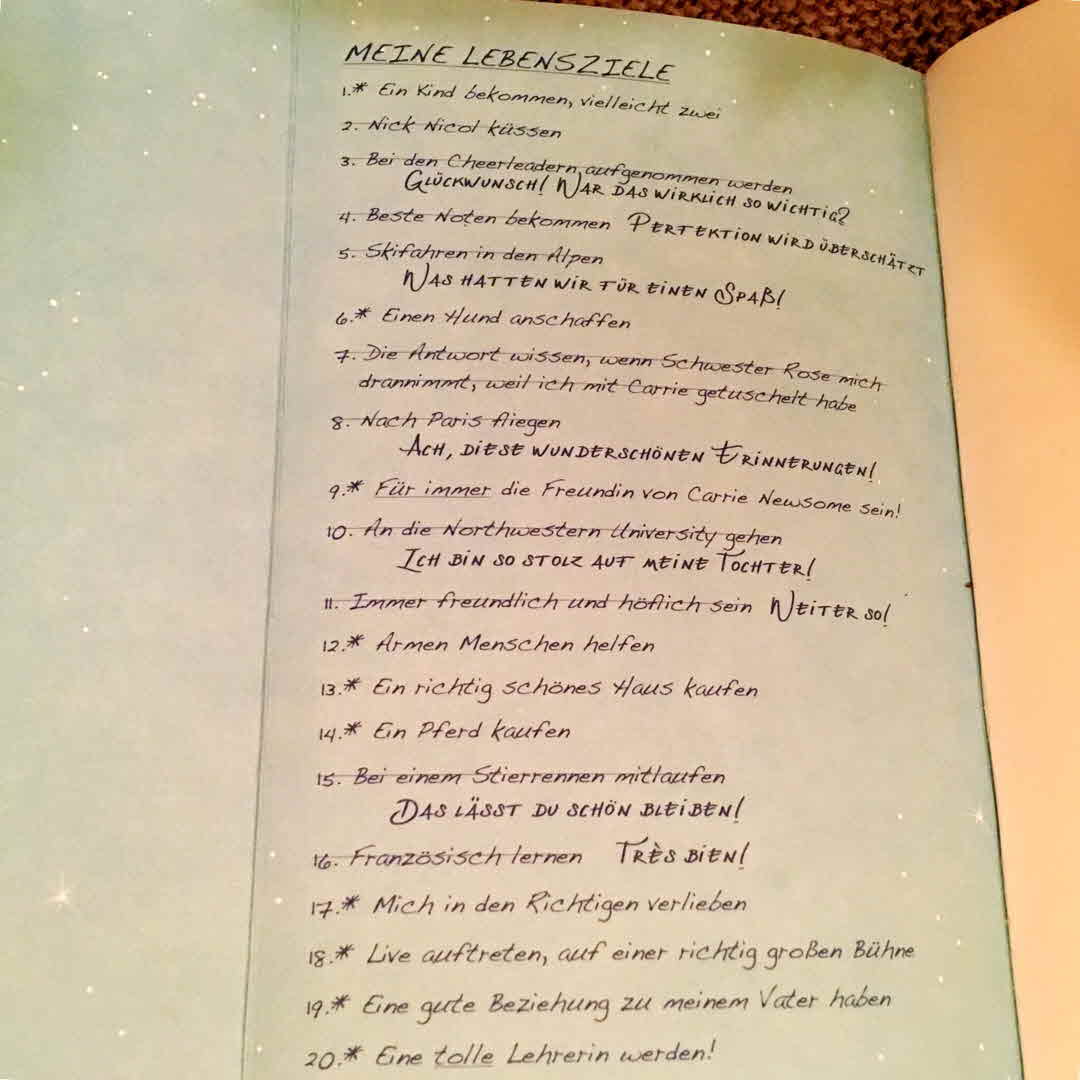 MEINE LEBENSZIELE
1.* Ein Kind bekommen, vielleicht zwei
2. Nick Nicol küssen
3. Bei den Cheerleadern aufgenommen werden
GLÜCKWUNSCH! WAR DAS WIRKLICH SO WICHTIG?
4. Beste Noten bekommen PERFEKTION WIRD ÜBERSCHÄTZT
5. Skifahren in den Alpen
WAS HATTEN WIR FÜR EINEN SPAß!
6.* Einen Hund anschaffen
7. Die Antwort wissen, wenn Schwester Rose mich
drannimmt, weil ich mit Carrie getuschelt habe
8. Nach Paris fliegen
ACH, DIESE WUNDERSCHÖNEN ERINNERUNGEN!
9.* Für immer die Freundin von Carrie Newsome sein!
10. An die Northwestern University gehen
ICH BIN SO STOLZ AUF MEINE TOCHTER!
11. Immer freundlich und höflich sein WEITER SO!
12.* Armen Menschen helfen
13.* Ein richtig schönes Haus kaufen
14.* Ein Pferd kaufen
15. Bei einem Stierrennen mitlaufen
DAS LÄSST DU SCHÖN BLEIBEN!
16. Französisch lernen TRÈS BIEN!
17.* Mich in den Richtigen verlieben
18.* Live auftreten, auf einer richtig großen Bühne
19.* Eine gute Beziehung zu meinem Vater haben
20.* Eine tolle Lehrerin werden!